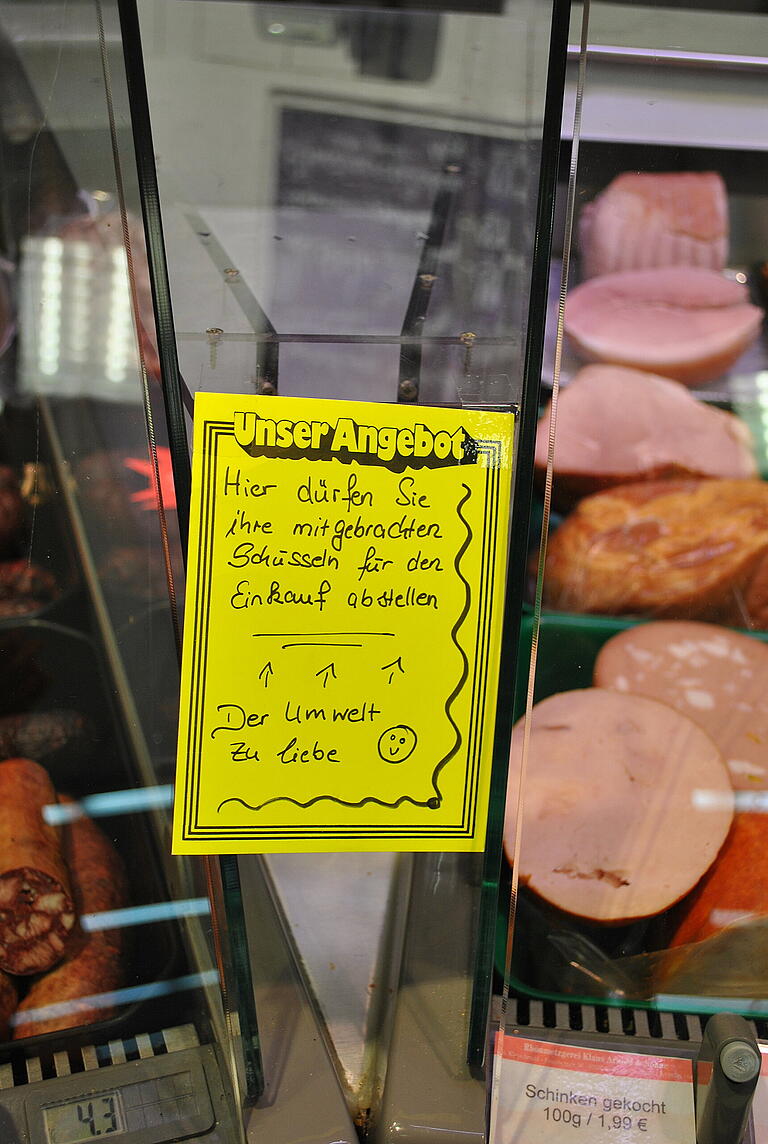 Unser Angebot
Hier dürfen Sie
ihre mitgebrachten
Schüsseln für den
Einkauf abstellen
↑ ↑ ↑
Der Umwelt
zu liebe
4.3
Rhönmetzgerei Klaus
Schinken gekocht
100g / 1,99 €